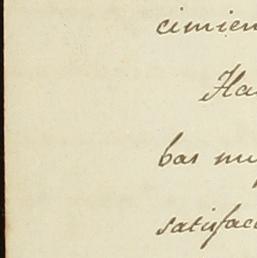 cimien
Ha
bas mu
satisfac